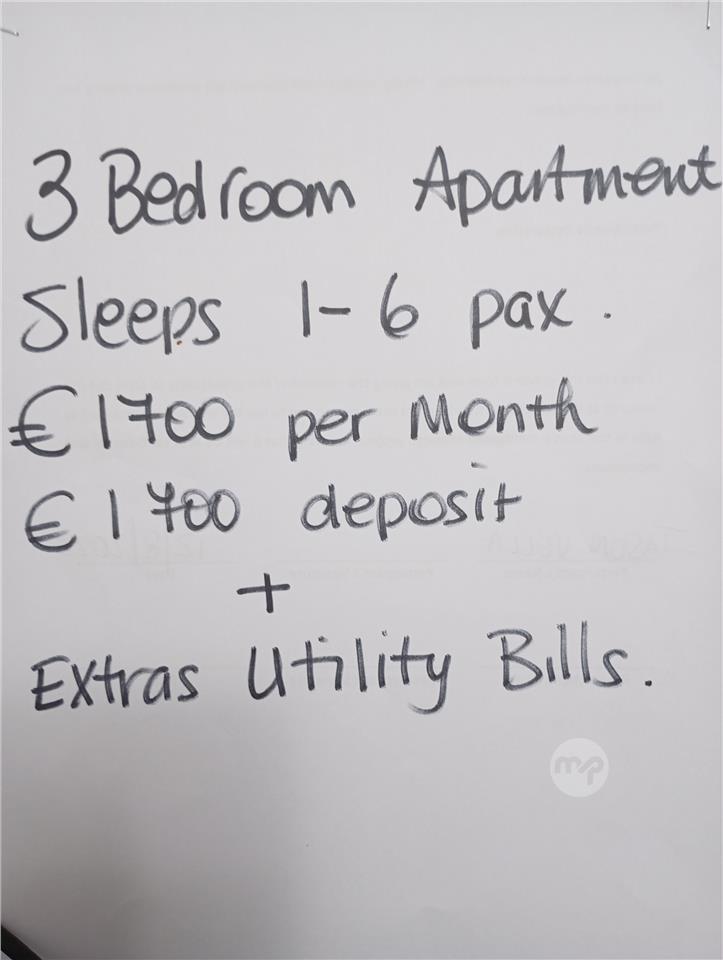 3 Bedroom Apartment
Sleeps 1-6 pax.
€1700 per Month
€1700 deposit
+
Extras Utility Bills.
mp